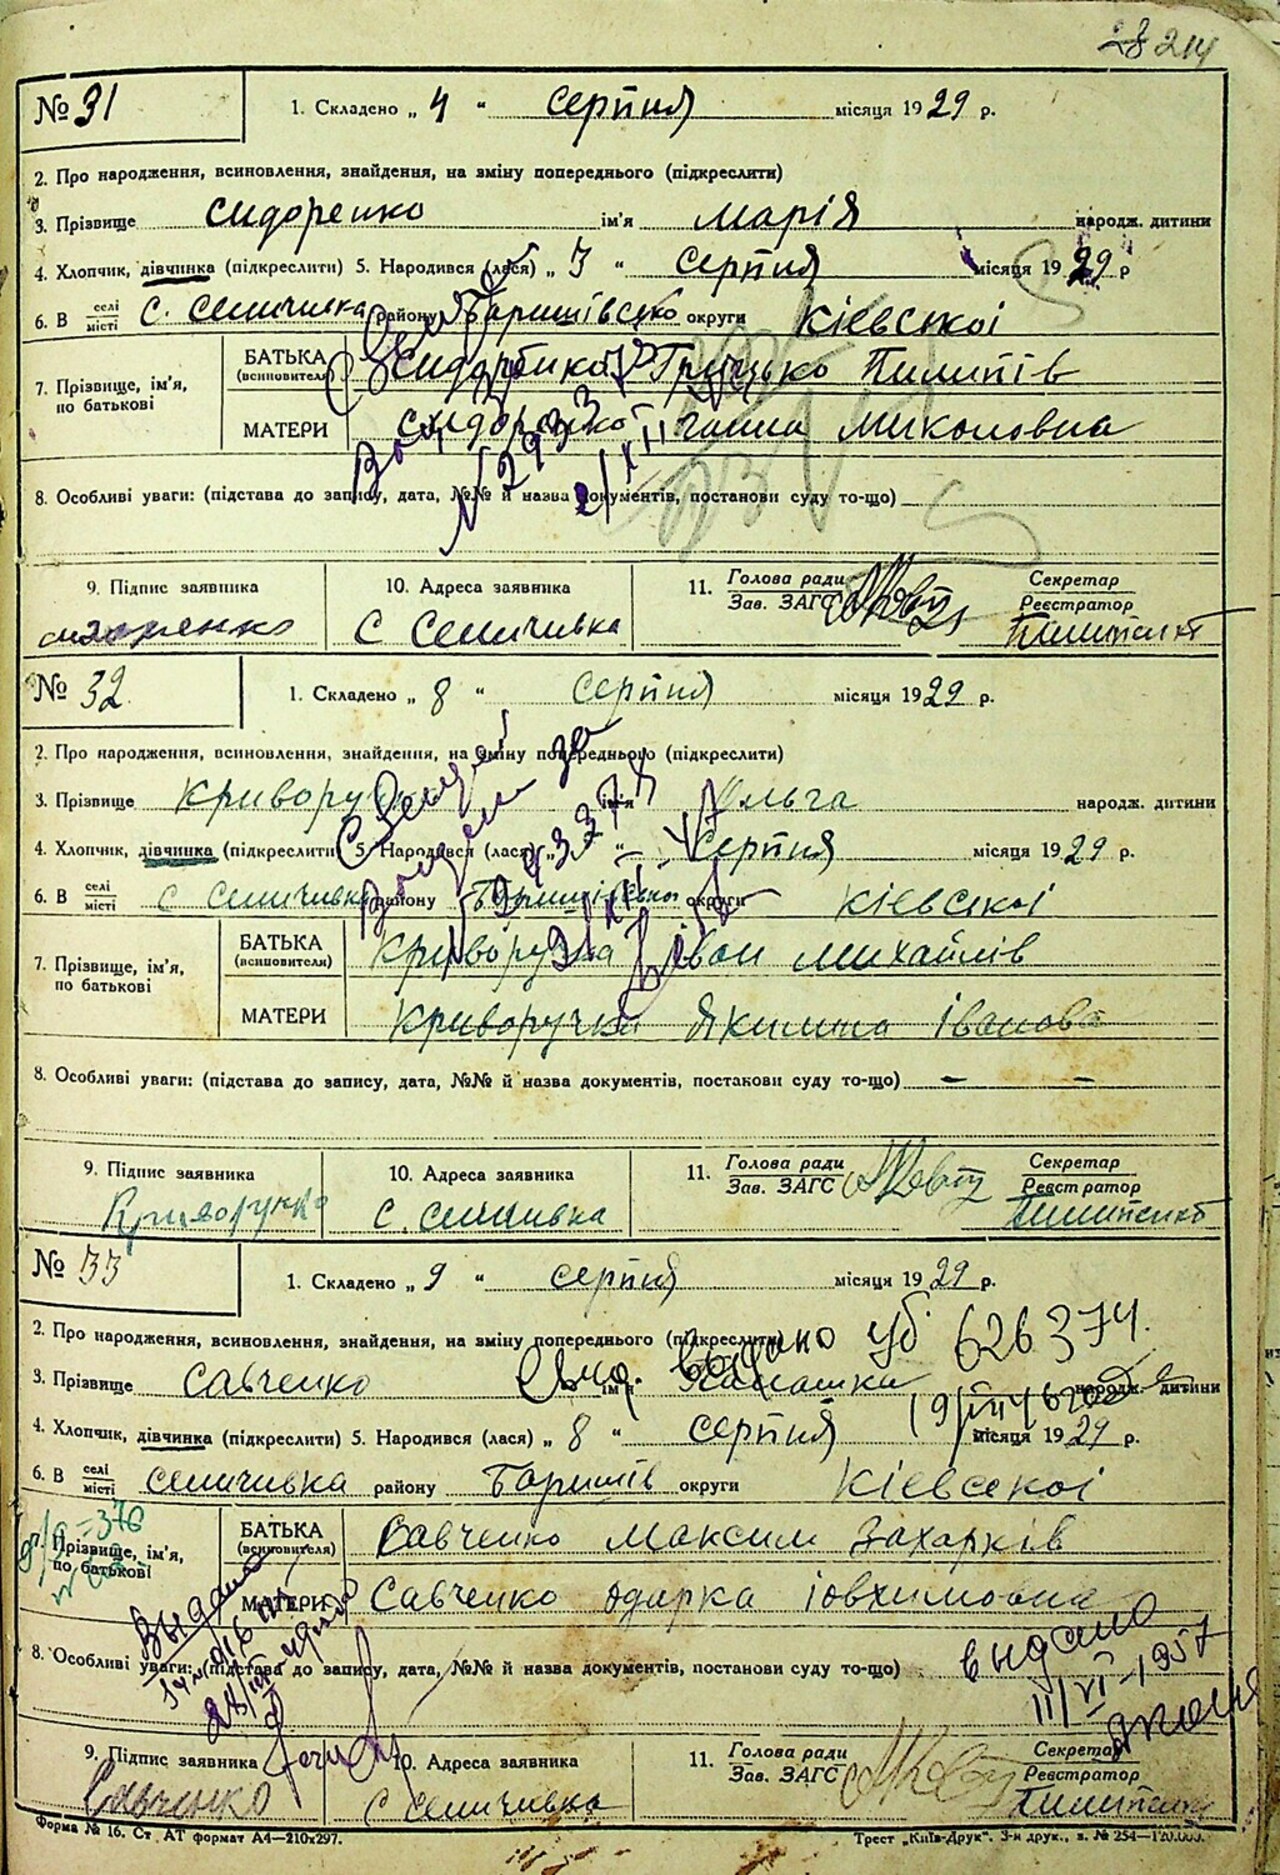 28 214
№ 31 1. Складено „ 4 “ серпня місяця 1929 р.
2. Про народження, всиновлення, знайдення, на зміну попереднього (підкреслити)
3. Прізвище Сидоренко ім'я Марія народж. дитини
4. Хлопчик, дівчинка (підкреслити) 5. Народився (лася) „ 3 “ серпня місяця 1929 р
6. В селі місті с. Селичивка району Баришівсько округи Кієвської
7. Прізвище, ім'я, по батькові БАТЬКА (всиновителя) Сидоренко Грицько Пилипів
МАТЕРИ Сидоренко Ганна Миколовна
8. Особливі уваги: (підстава до запису, дата, №№ й назва документів, постанови суду то-що)
9. Підпис заявника 10. Адреса заявника 11. Голова ради Зав. ЗАГС Секретар Реєстратор
Сидоренко с Селичивка
№ 32 1. Складено „ 8 “ серпня місяця 1929 р.
2. Про народження, всиновлення, знайдення, на зміну попереднього (підкреслити)
3. Прізвище Криворучка ім'я Ольга народж. дитини
4. Хлопчик, дівчинка (підкреслити) 5. Народився (лася) „ “ серпня місяця 1929 р.
6. В селі місті с Селичивка району округи Кієвської
7. Прізвище, ім'я, по батькові БАТЬКА (всиновителя) Криворучка Іван Михайлів
МАТЕРИ Криворучка Якилина Іванова
8. Особливі уваги: (підстава до запису, дата, №№ й назва документів, постанови суду то-що) – –
9. Підпис заявника 10. Адреса заявника 11. Голова ради Зав. ЗАГС Секретар Реєстратор
Криворучко с. Селичивка
№ 33 1. Складено „ 9 “ серпня місяця 1929 р.
2. Про народження, всиновлення, знайдення, на зміну попереднього (підкреслити)
выдано уб 626374.
3. Прізвище Савченко ім'я народж. дитини
4. Хлопчик, дівчинка (підкреслити) 5. Народився (лася) „ 8 “ серпня місяця 1929 р.
6. В селі місті Селичивка району Баришів округи Кієвської
7. Прізвище, ім'я, по батькові БАТЬКА (всиновителя) Савченко Максим Захарків
МАТЕРИ Савченко Одарка Іовхимовна
8. Особливі уваги: (підстава до запису, дата, №№ й назва документів, постанови суду то-що)
Выдано
выдано
11/VI-1957
9. Підпис заявника 10. Адреса заявника 11. Голова ради Зав. ЗАГС Секретар Реєстратор
Савченко с Селичивка
Форма № 16. Ст. АТ формат А4—210х297. Трест „Київ-Друк“. 3-я друк., в. № 254—120.000.